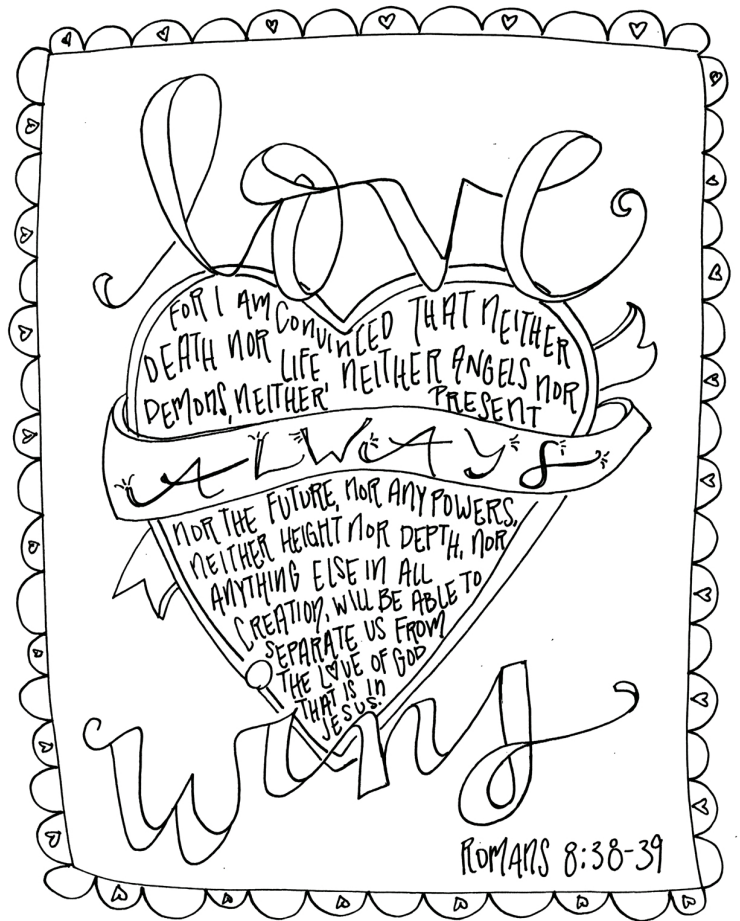 love
FOR I AM CONVINCED THAT NEITHER
DEATH NOR LIFE NEITHER ANGELS NOR
DEMONS, NEITHER' PRESENT
ALWAYS
NOR THE FUTURE, NOR ANY POWERS,
NEITHER HEIGHT NOR DEPTH, NOR
ANYTHING ELSE IN ALL
CREATION, WILL BE ABLE TO
SEPARATE US FROM
THE LOVE OF GOD
THAT IS IN
JESUS.
wins
ROMANS 8:38-39